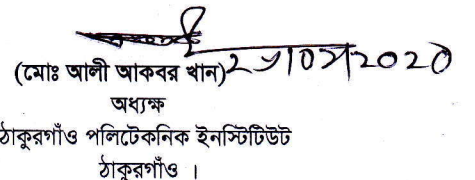 (মোঃ আলী আকবর খান)
অধ্যক্ষ
ঠাকুরগাঁও পলিটেকনিক ইনস্টিটিউট
ঠাকুরগাঁও ।